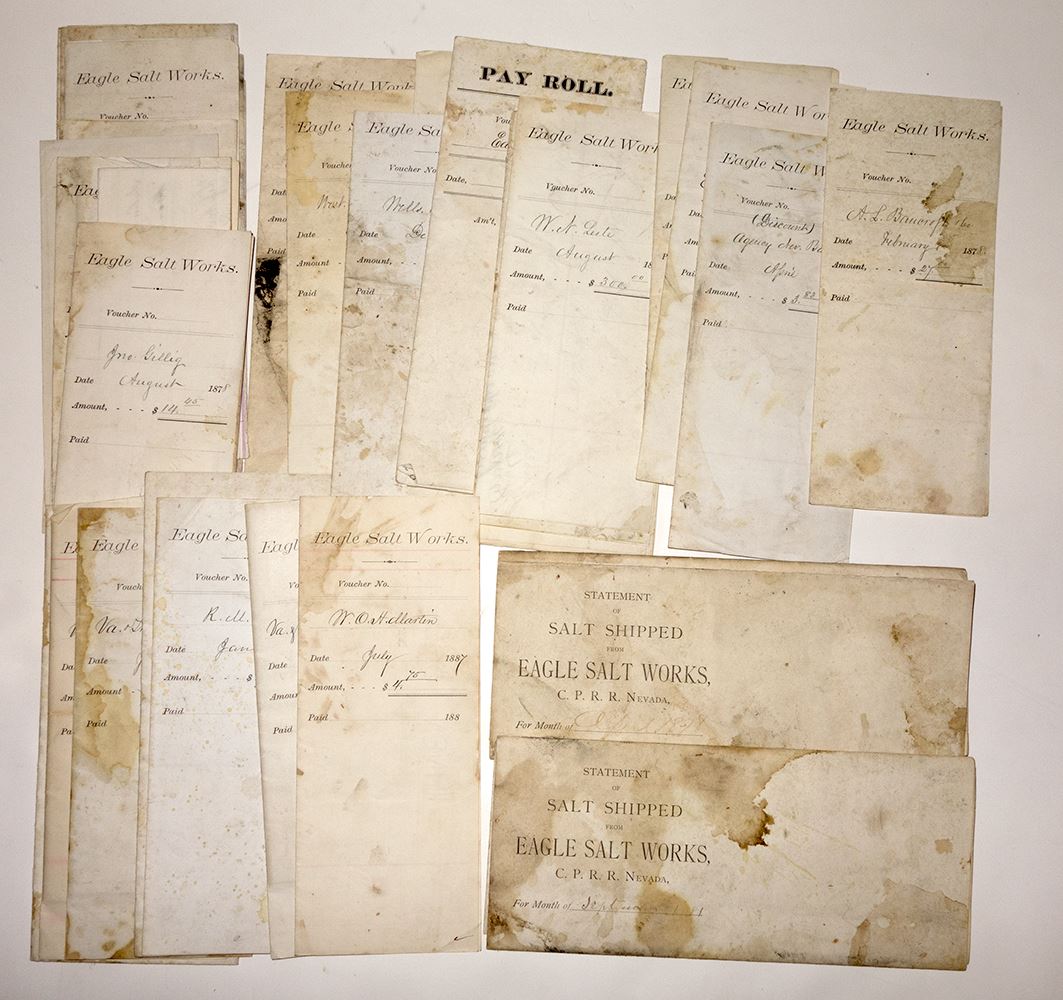 Eagle Salt Works.
Voucher No.
Eag
Eagle Salt Works.
Voucher No.
Jno. Gillig
Date August 1878
Amount, - - - - $ 14.45
Paid
Eagle Salt Work
Dat
Amo
Paid
Eagle S
Voucher
West.
Date
Amount
Paid
Eagle Sa
Voucher N
Wells,
Date
Amount,
Paid
PAY ROLL.
Vou
Ea
Date,
Am't,
Eagle Salt Work
Voucher No.
Date August 18
Amount, - - - - $ 300.00
Paid
Ea
Da
Am
Pai
Eagle Salt Wor
Eagle Salt W
Voucher No.
(Discount)
Agency Nev. Ba
Date April
Amount, - - - - $ 3.
Paid
Eagle Salt Works.
Voucher No.
A. L. Bancroft & Co
Date February 187
Amount, - - - - $ 27.
Paid
E
Da
Am
Pa
Eagle
Vouch
Va. &
Date
Amount
Paid
Eagle Sa
Voucher No.
R. M.
Date Jan
Amount, - - - - $
Paid
Eagl
Vo
Va. &
Date
Amoun
Paid
Eagle Salt Works.
Voucher No.
W. O. H. Martin
Date July 1887
Amount, - - - - $ 4.75
Paid 188
STATEMENT
OF
SALT SHIPPED
FROM
EAGLE SALT WORKS,
C. P. R. R. Nevada,
For Month of April
STATEMENT
OF
SALT SHIPPED
FROM
EAGLE SALT WORKS,
C. P. R. R. Nevada,
For Month of